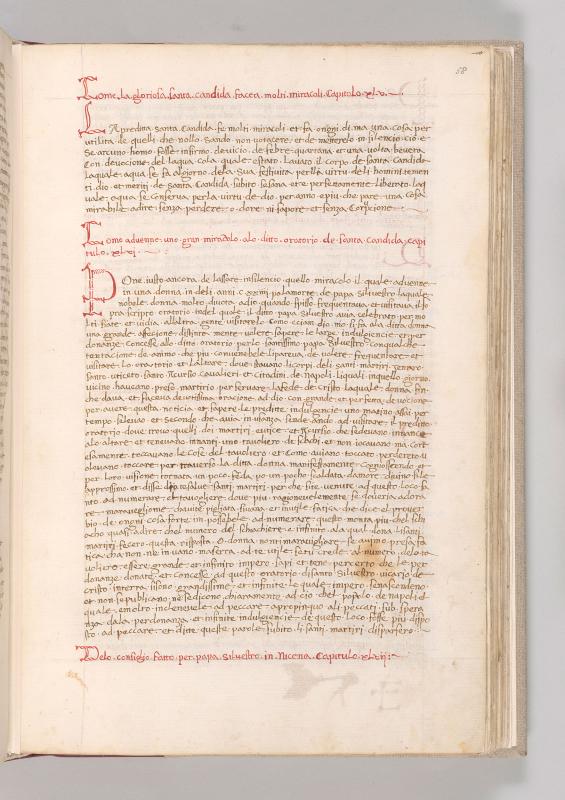 58
Come. la gloriosa. santa. candida. facea. molti. miracoli. Capitulo. xl.v.
LA predita. Santa. Candida. fe. molti. miracoli. et fa. onnj. di. ma. una. cosa. per
utilita. de. quelli. che nollo. Sando. non. po tacere. et de mettere lo in silencio. cio e.
Se. alcuno. homo. fosse. infirmo. de vicio. de. febre. quartana. et una. volta. beveva.
Con. devocione. del laqua. cola. quale. estato. Lavato. il. corpo. de. santa. Candida.
Laquale. aqua. se. fa. al giorno. dela. Sua. festivita. per lla. virtu. de li. homini. temen
ti. dio. et meriti. de. Santa. Candida. subito. se sana. et e perfettamente. liberato. laq
uale. aqua. se. conserva. per la. virtu. de. dio. per anno. e piu. che. pare. una. cosa.
mirabile. a dire. senza. perdere. o dore. ni sapore. et senza. Corpcione.
Como. advenne. uno. gran. miracolo. alo. ditto. oratorio. de. santa. candida. capi
tulo. xlvi.
PONE. iusto. ancora. de. lassare. in silencio. quello. miracolo. il. quale. advenne.
in una. donna. in deli. anni. CCXIIII. po la morte. de. papa. silvestro. la quale.
nobele. donna. molto. divota. a dio. quando. spisso. frequentava. et visitava. il so
pra scripto. oratorio. in del. quale. il. ditto. papa. silvestro. avia. celebrato. per mo
lti. fiate. et vidia. al altra. gente. visitarelo. Como. ecciam. dio. mostra. ala. ditta. donna
una grande. affecione. distinta mente. volere. sapere. le. large. indulgencie. et per
donanze. Concesse. allo. ditto. oratorio. per lo. santissimo. papa. Silvestro. con qualche
tentacione. de. animo. che. piu. convenebele. li pareva. de. volere. frequentare. et
visitare. lo. oratorio. et. l altare. dove. stavano. li corpi. deli. santi. martiri. gennaro.
santo. eutice. santo. Accurso. cavalieri. et citadini. de. napoli. liquali. in quello. giorno.
vicino. haveano. preso. martirio. per servare. la fede. de. cristo. la quale. donna. fin
che dava. et. faceva. devotissima. oracione. ad dio. con grande. et perfetta. devocione.
per avere. questa. noticia. et sapere. le. predite. indulgencie. uno. matino. assai. per
tempo. se levao. et secondo. che. avia. in usanza. sende. ando. ad visitare. il. predito
oratorio. dove. trovo. quelli. dei. martiri. eutice. et Accurso. che sedevano. innance
alo. altare. et tenevano. innanti. uno. tavoliero. de. schachi. et non. iocavano. ma. cort
esamente. toccavano. le. cose. del tavoliero. et Como. aviano. toccato. perdereto. v
olevano. toccare. per traverso. la. ditta. donna. manifestamente. cognoscendo. et
per loro. visione. tornata. un poco. fella. po. un pocho. scaldata. damore. divino. se le
approssimo. et disse. dio. ve salve. santi. martiri. per che. site. venute. ad questo. loco. sa
nto. ad numerare. el tavoghere. dove. piu. ragionevelemente. se. doveria. adora
re. maraveglione. chavite. pigliata. sivana. et inutile. fatica. che dice. el prover
bio. de. onnj. cosa. forte. in possebele. ad numerare. questo. monta. piu. chel. sch
acho. quasi. adire. chel. numero. del. schachiere. e infinito. ala. qual. dona. li santi.
martiri. fecero. questa. risposta. O. donna. non ti maravigliare. se avimo. presa. fa
tica. cha. non. ne in vano. ma ferra. ad te. utile. se tu. crede. al numero. delo. ta
voliero. essere. grande. et infinito. impero. sapi. et tene. per certo. che le. per
donanze. donate. et concesse. ad questo. oratorio. di santo. silvestro. vicario. de.
cristo. in terra. sono. grandissime. et infinite. le quale. impero. se nascondeno
et non. se publicano. ne se dicono. chiaramente. ad cio. chel. populo. de. napoli. il
quale. e molto. inclenevele. ad peccare. apropinquo. ali. peccati. sub. spera
nza. dala. perdonanza. et infinite. indulgiencie. de. questo. loco. fosse. piu. dispo
sto. ad peccare. et ditte. queste. parole. subito. li santi. martiri. disparsero.
Delo. consiglio. fatto. per papa. silvestro. in. Nicena. Capitulo. xlvij.